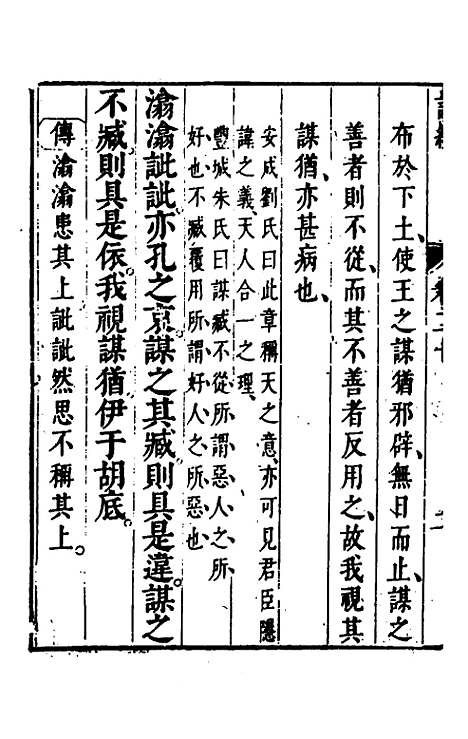 布於下土、使王之謀猶邪辟、無日而止、謀之
善者則不從、而其不善者反用之、故我視其
謀猶、亦甚病也、
安成劉氏曰此章稱天之意、亦可見君臣隱
諱之義、天人合一之理、
豐城朱氏曰謀臧不從、所謂惡人之所
好也、不臧覆用所謂好人之所惡也
潝潝訿訿亦孔之哀、謀之其臧則具是違。謀之
不臧、則具是依。我視謀猶伊于胡底。
傳潝潝患其上訿訿然思不稱其上。